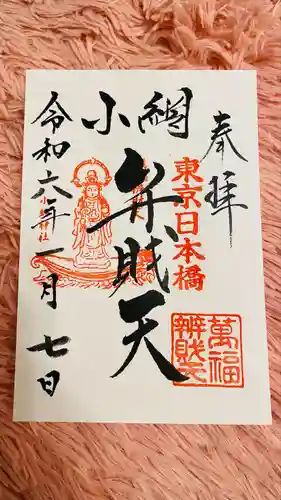 奉拝
東京日本橋
小網
弁賊天
萬福
辨財天
令和六年一月七日